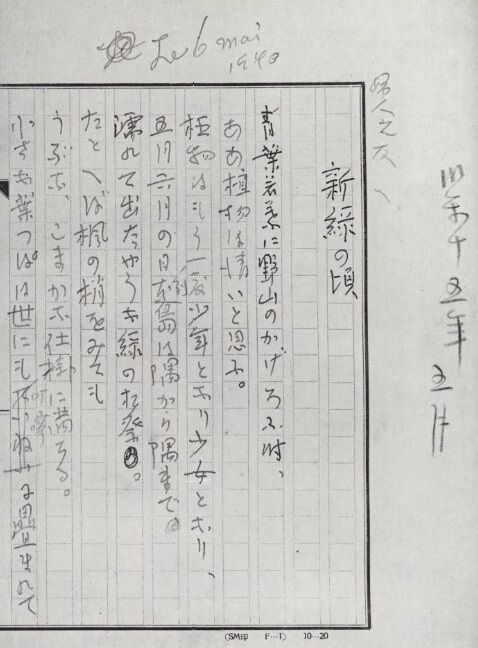 昭和十五年五月
婦人之友
Le 6 mai
1940
新緑の頃
青葉若葉に野山のかげろふ時、
ああ植物は清いと思ふ。
植物はもう一度少年となり少女となり、
五月六月の日本列島は隅から隅まで
濡れて出たやうな緑のお祭。
たとへば楓の梢をみても
うぶな、こまかな仕掛に満ちる。
小さな葉つぱは世にも叮寧に畳まれて
(SM印 F…T) 10…20